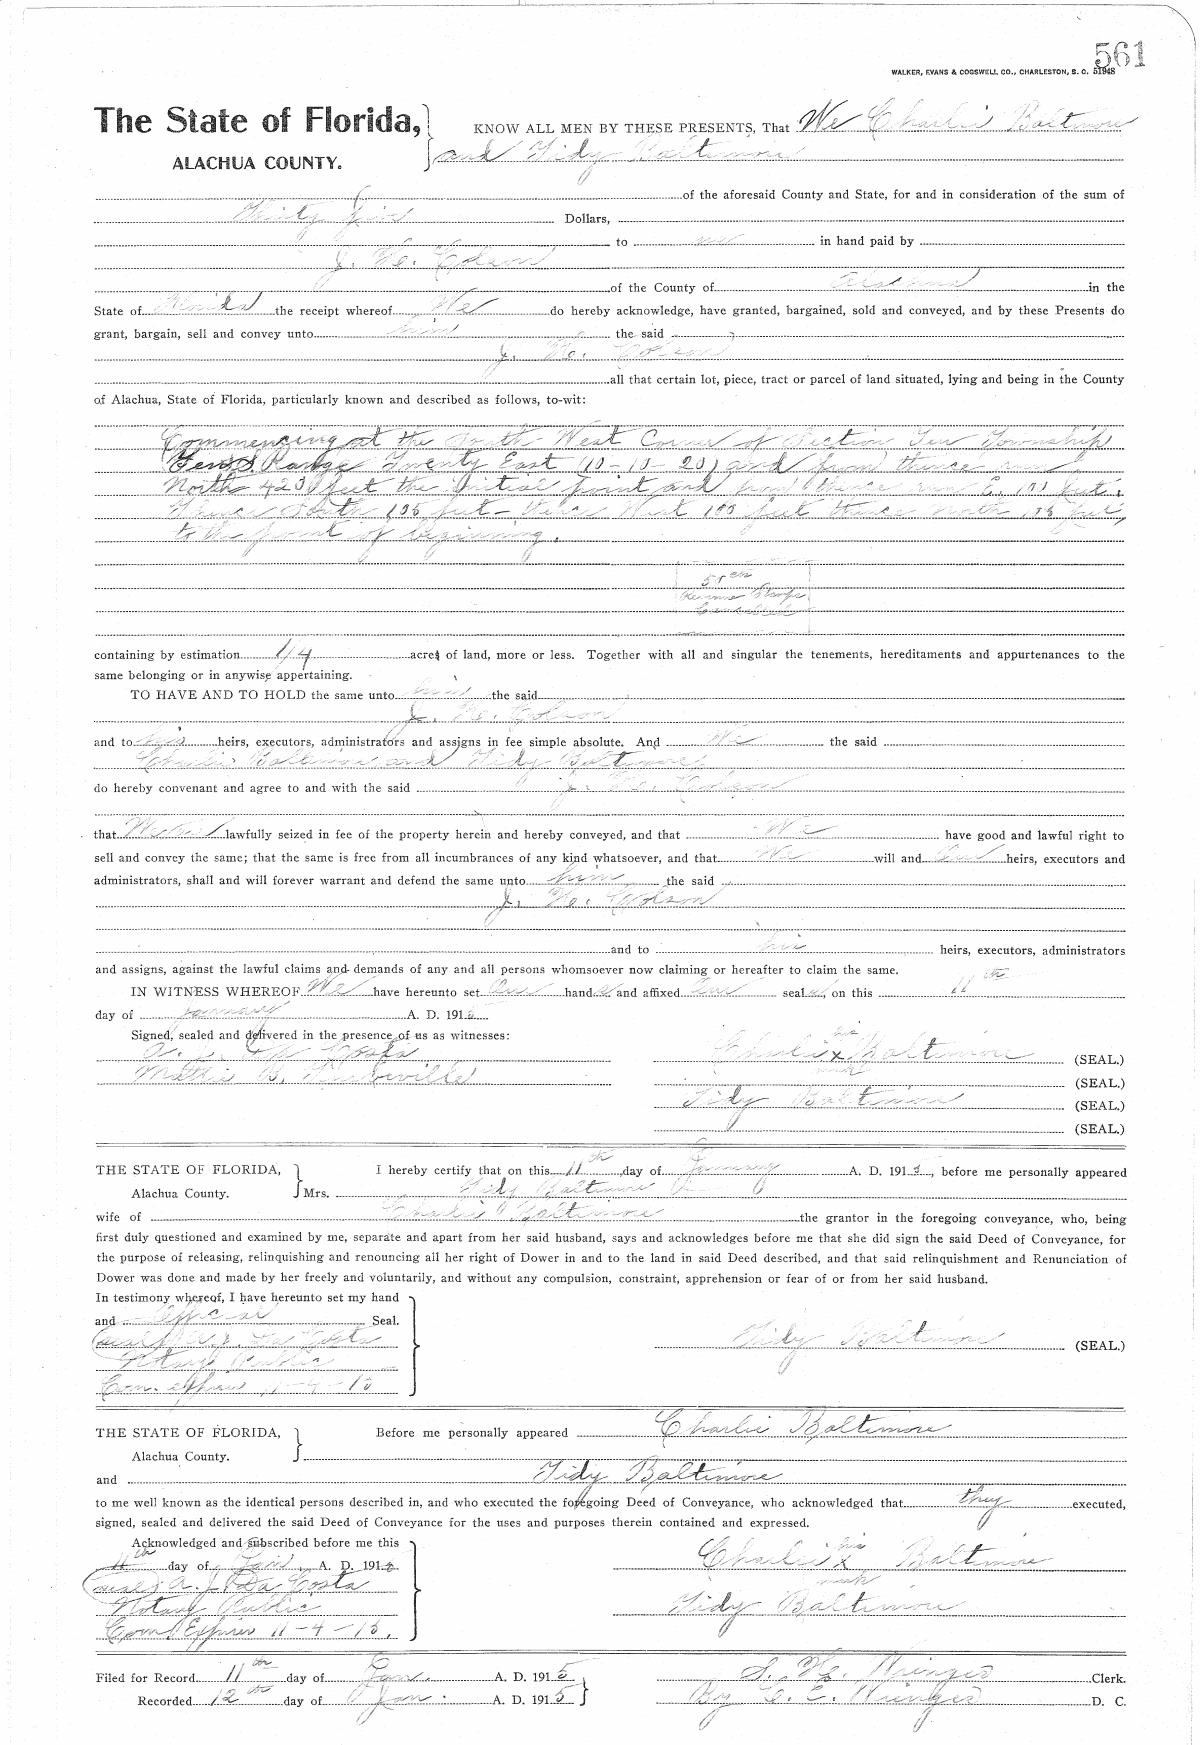 561
WALKER, EVANS & COGSWELL CO., CHARLESTON, S. C. 51948
The State of Florida, KNOW ALL MEN BY THESE PRESENTS, That We Charlie Baltimore
ALACHUA COUNTY. and Tidy Baltimore
of the aforesaid County and State, for and in consideration of the sum of
Thirty Five Dollars,
to me in hand paid by
J. H. Colson
of the County of Alachua in the
State of Florida the receipt whereof We do hereby acknowledge, have granted, bargained, sold and conveyed, and by these Presents do
grant, bargain, sell and convey unto him the said
J. H. Colson
all that certain lot, piece, tract or parcel of land situated, lying and being in the County
of Alachua, State of Florida, particularly known and described as follows, to-wit:
Commencing at the South West Corner of Section Ten Township
Ten S. Range Twenty East (10-10-20) and from thence run
North 420 feet the initial point and from thence run E. 105 feet.
Thence South 105 feet - thence West 105 feet thence North 105 feet,
to the point of beginning.
Revenue Stamps
Cancelled
containing by estimation 1/4 acres of land, more or less. Together with all and singular the tenements, hereditaments and appurtenances to the
same belonging or in anywise appertaining.
TO HAVE AND TO HOLD the same unto him the said
J. H. Colson
and to his heirs, executors, administrators and assigns in fee simple absolute. And We the said
Charlie Baltimore and Tidy Baltimore
do hereby convenant and agree to and with the said J. H. Colson
that We are lawfully seized in fee of the property herein and hereby conveyed, and that We have good and lawful right to
sell and convey the same; that the same is free from all incumbrances of any kind whatsoever, and that We will and Our heirs, executors and
administrators, shall and will forever warrant and defend the same unto him the said
J. H. Colson
and to his heirs, executors, administrators
and assigns, against the lawful claims and demands of any and all persons whomsoever now claiming or hereafter to claim the same.
IN WITNESS WHEREOF We have hereunto set Our hands and affixed Our seals, on this 11th
day of January A. D. 1915
Signed, sealed and delivered in the presence of us as witnesses:
A. J. Da Costa
Charlie his x mark Baltimore (SEAL.)
Mattie B. (SEAL.)
Tidy Baltimore (SEAL.)
(SEAL.)
THE STATE OF FLORIDA, I hereby certify that on this 11th day of January A. D. 1915, before me personally appeared
Alachua County. Mrs. Tidy Baltimore
wife of Charlie Baltimore the grantor in the foregoing conveyance, who, being
first duly questioned and examined by me, separate and apart from her said husband, says and acknowledges before me that she did sign the said Deed of Conveyance, for
the purpose of releasing, relinquishing and renouncing all her right of Dower in and to the land in said Deed described, and that said relinquishment and Renunciation of
Dower was done and made by her freely and voluntarily, and without any compulsion, constraint, apprehension or fear of or from her said husband.
In testimony whereof, I have hereunto set my hand
and Official Seal.
(seal) A. J. Da Costa
Tidy Baltimore (SEAL.)
Notary Public
Com. expires 11-4-15
THE STATE OF FLORIDA, Before me personally appeared Charlie Baltimore
Alachua County.
and Tidy Baltimore
to me well known as the identical persons described in, and who executed the foregoing Deed of Conveyance, who acknowledged that they executed,
signed, sealed and delivered the said Deed of Conveyance for the uses and purposes therein contained and expressed.
Acknowledged and subscribed before me this
11th day of Jan A. D. 1915
Charlie his x mark Baltimore
(seal) A. J. Da Costa
Notary Public
Tidy Baltimore
Com. Expires 11-4-15.
Filed for Record 11th day of Jan. A. D. 1915 S. H. Wienges Clerk.
Recorded 12th day of Jan. A. D. 1915 By C. E. Wienges D. C.